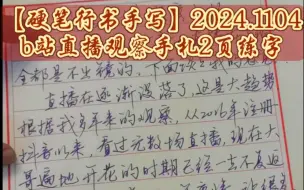 【硬笔行书手写】2024.1104
b站直播观察手札2页练字
全部是不出镜的，下面
直播在逐渐没落了，这是大趋势
根据我多年来的观察，从2016年注册
抖音以来，看过无数场直播，现在大
普遍地开花的时期已经一去不复返